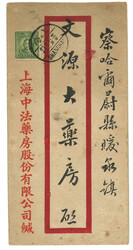 察哈爾蔚縣暖泉鎮
文源大藥房啟
上海中法藥房股份有限公司緘